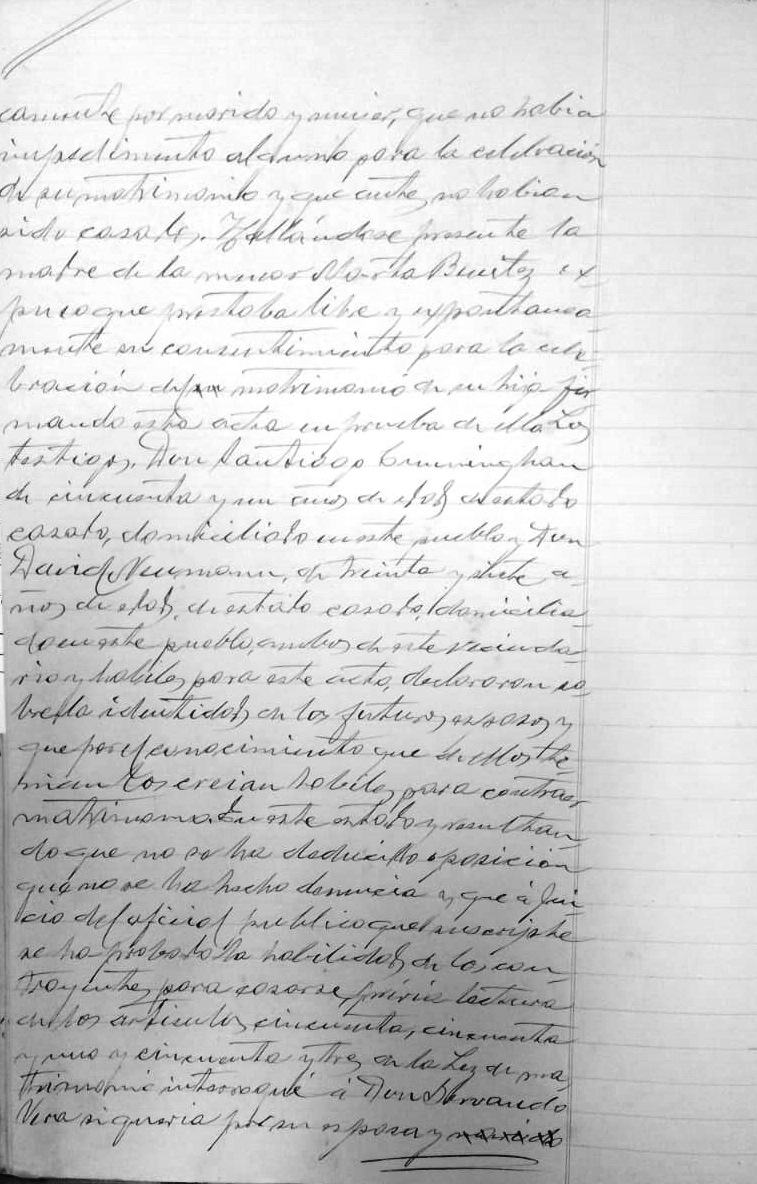 camente por marido y mujer, que no habia
impedimento alguno para la celebración
de su matrimonio y que antes no habian
sido casados. Hallándose presente la
madre de la menor Marta Benitez ex-
puso que prestaba libre y expontanea-
mente su consentimiento para la cele-
bración del su matrimonio de su hija fir
mando esta acta en prueba de ello Los
testigos, Don Santiago Cunninghan
de cincuenta y un años de edad de estado
casado, domiciliado en este pueblo y Don
David Neumann, de treinta y siete a-
ños de edad, de estado casado, domicilia-
do en este pueblo, ambos de este vecinda-
rio y habiles para este acto, declararon so-
bre la identidad de los futuros esposos y
que por el conocimiento que de ellos te-
nian los creian habiles para contraer
matrimonio. En este estado y resultan-
do que no se ha deducido oposición
que no se ha hecho denuncia y que á jui-
cio del oficial publico que suscribe
se ha probado la habilidad de los con-
trayentes para casarse, prévia lectura
de los articulos cincuenta, cincuenta
y uno y cincuenta y tres de la Ley de ma-
trimonio interrogué á Don Servando
Vera si queria por su esposa y